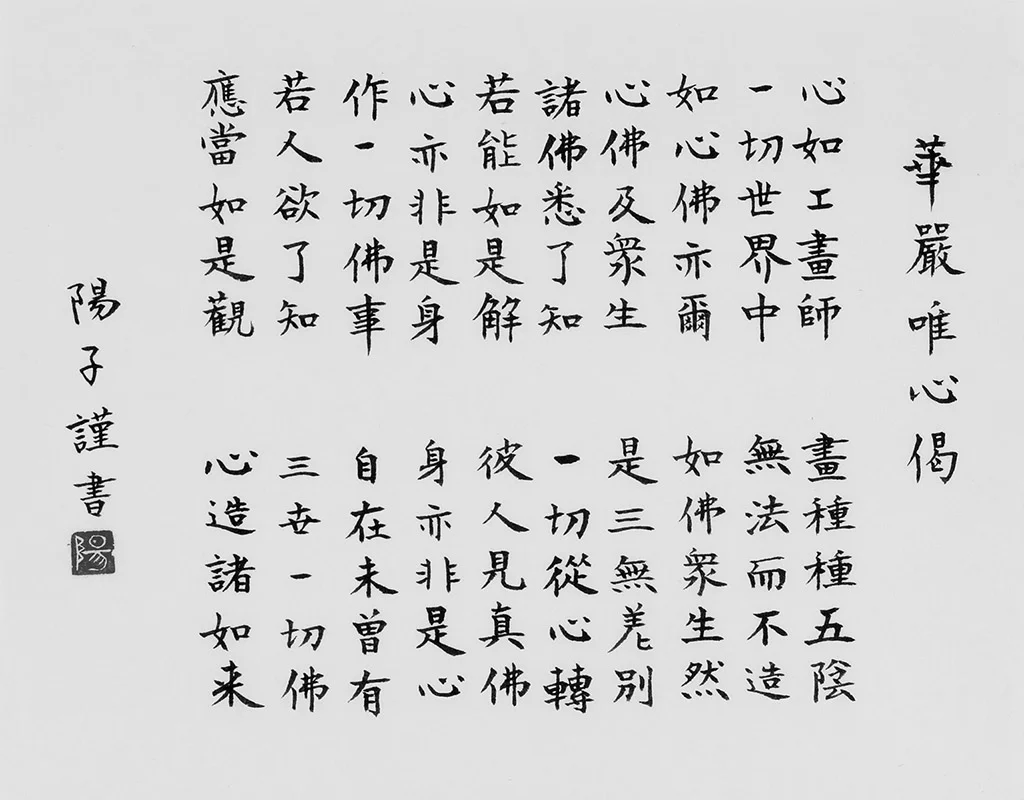 華嚴唯心偈
心如工畫師 畫種種五陰
一切世界中 無法而不造
如心佛亦爾 如佛眾生然
心佛及眾生 是三無差別
諸佛悉了知 一切從心轉
若能如是解 彼人見真佛
心亦非是身 身亦非是心
作一切佛事 自在未曾有
若人欲了知 三世一切佛
應當如是觀 心造諸如来
陽子謹書
陽